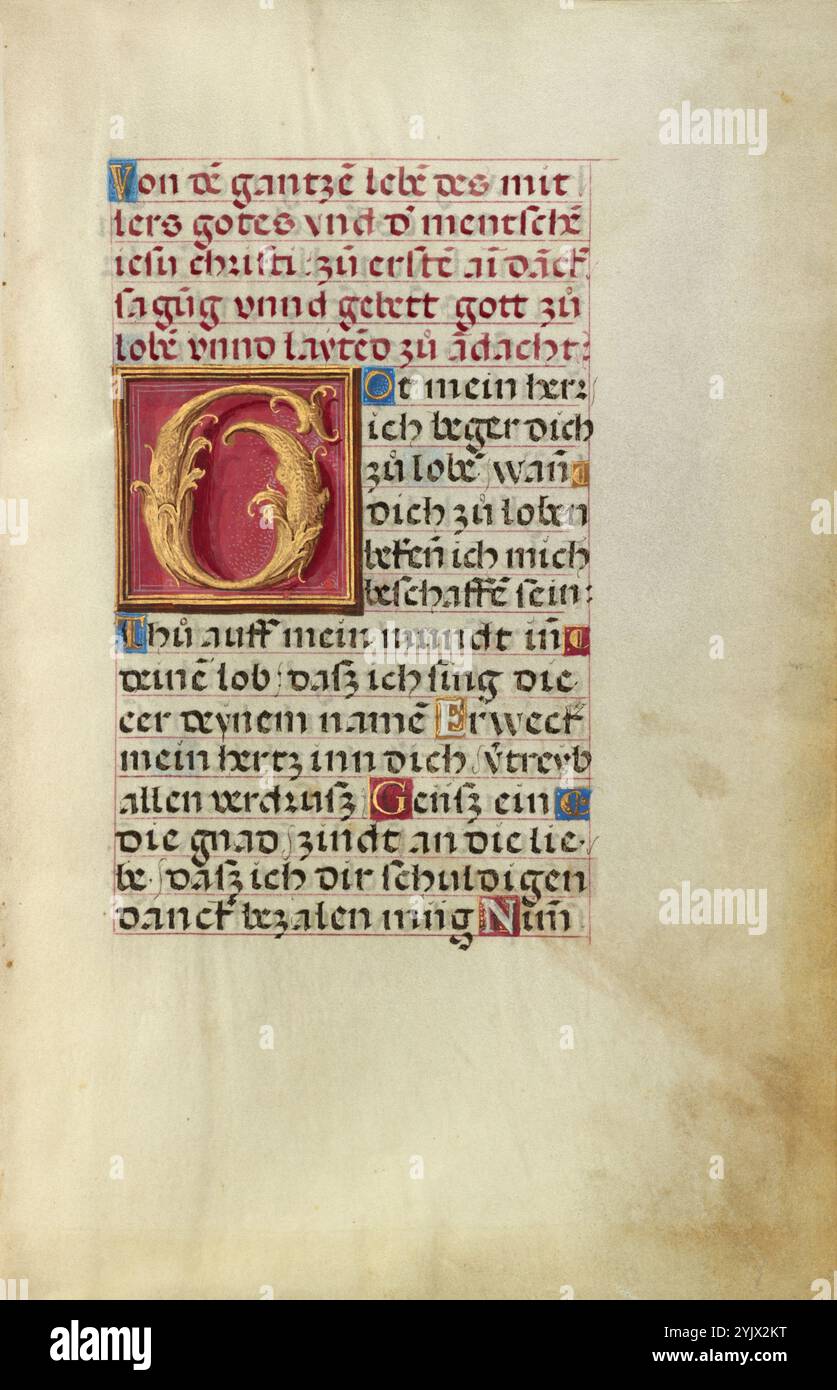 Von dē gantzē lebē des mit
lers gotes vnd d' mentschē
iesu christi : zū erstē ain dāck
sagūg vnnd gebett gott zů
lobē vnnd laytēd zů ādacht:
Got mein herz
ich beger dich
zů lobē wan̄
dich zů loben
beken̄ ich mich
beschaffē sein:
Thů auff mein mundt in̄
deinē lob : dasz ich sing die
eer deynem namē Erweck
mein hertz inn dich v̄treyb
allen verdrusz Geusz ein
die gnad zindt an die lie
be · dasz ich dir schuldigen
danck bezalen müg Num̄
alamy
a
alamy
Image ID: 2YJX2KT
www.alamy.com